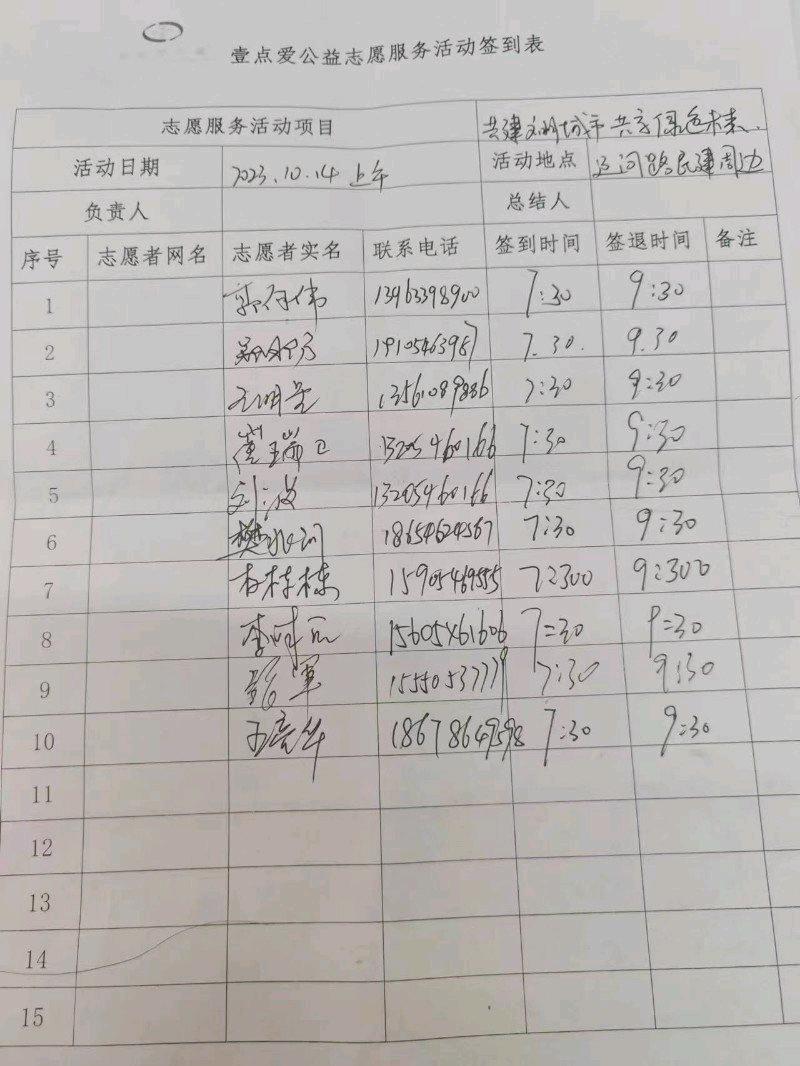 壹点爱公益志愿服务活动签到表
志愿服务活动项目 共建文明城市 共享绿色未来
活动日期 2023.10.14 上午 活动地点 运河路民建周边
负责人 总结人
序号 志愿者网名 志愿者实名 联系电话 签到时间 签退时间 备注
1 13463398900 7:30 9:30
2 19105463987 7.30. 9.30
3 王明星 13561089886 7:30 9:30
4 崔瑞卫 13205460166 7:30 9:30
5 刘波 13205460166 7:30 9:30
6 18654624567 7:30 9:30
7 杜栋栋 15905469555 7:2300 9:300
8 15605461606 7=30 9=30
9 彭军 15550537779 7:30 9:30
10 18678649598 7:30 9:30
11
12
13
14
15